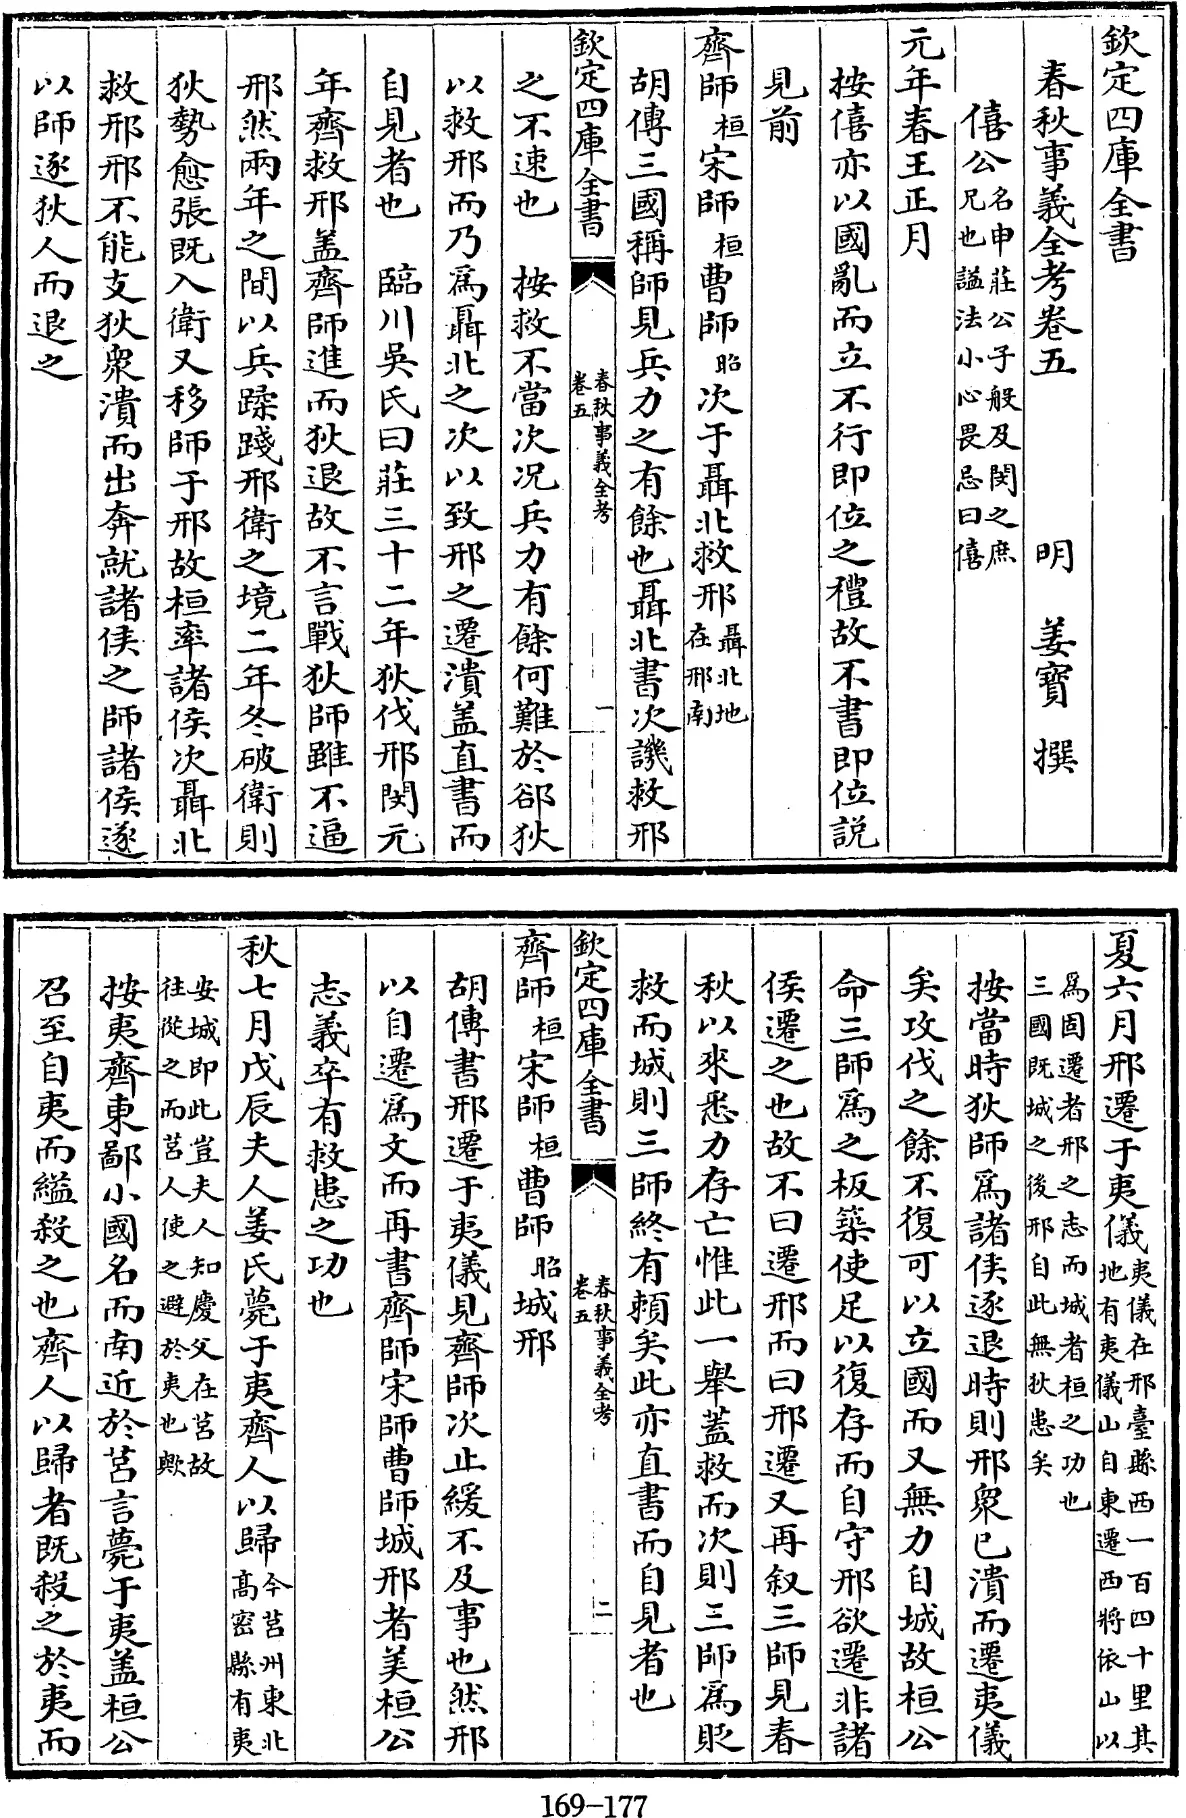 欽定四庫全書
春秋事義全考卷五
明 姜寶 撰
僖公名申莊公子般及閔之庶
兄也諡法小心畏忌曰僖
元年春王正月
按僖亦以國亂而立不行即位之禮故不書即位説
見前
齊師桓宋師桓曹師昭次于聶北救邢聶北地
在邢南
胡傳三國稱師見兵力之有餘也聶北書次譏救邢
欽定四庫全書
春秋事義全考
卷五
一
之不速也 按救不當次况兵力有餘何難於郤狄
以救邢而乃爲聶北之次以致邢之遷潰盖直書而
自見者也 臨川吳氏曰莊三十二年狄伐邢閔元
年齊救邢盖齊師進而狄退故不言戰狄師雖不逼
邢然兩年之間以兵蹂踐邢衛之境二年冬破衛則
狄勢愈張既入衛又移師于邢故桓率諸侯次聶北
救邢邢不能支狄衆潰而出奔就諸侯之師諸侯遂
以師逐狄人而退之
夏六月邢遷于夷儀夷儀在邢臺縣西一百四十里其
地有夷儀山自東遷西將依山以
爲固遷者邢之志而城者桓之功也
三國既城之後邢自此無狄患矣
按當時狄師爲諸侯逐退時則邢衆已潰而遷夷儀
矣攻伐之餘不復可以立國而又無力自城故桓公
命三師爲之板築使足以復存而自守邢欲遷非諸
侯遷之也故不曰遷邢而曰邢遷又再叙三師見春
秋以來悉力存亡惟此一舉蓋救而次則三師爲貶
救而城則三師終有頼矣此亦直書而自見者也
欽定四庫全書
春秋事義全考
卷五
二
齊師桓宋師桓曹師昭城邢
胡傳書邢遷于夷儀見齊師次止緩不及事也然邢
以自遷爲文而再書齊師宋師曹師城邢者美桓公
志義卒有救患之功也
秋七月戊辰夫人姜氏薨于夷齊人以歸今莒州東北
高密縣有夷
安城即此豈夫人知慶父在莒故
往從之而莒人使之避於夷也歟
按夷齊東鄙小國名而南近於莒言薨于夷盖桓公
召至自夷而縊殺之也齊人以歸者既殺之於夷而
169-177